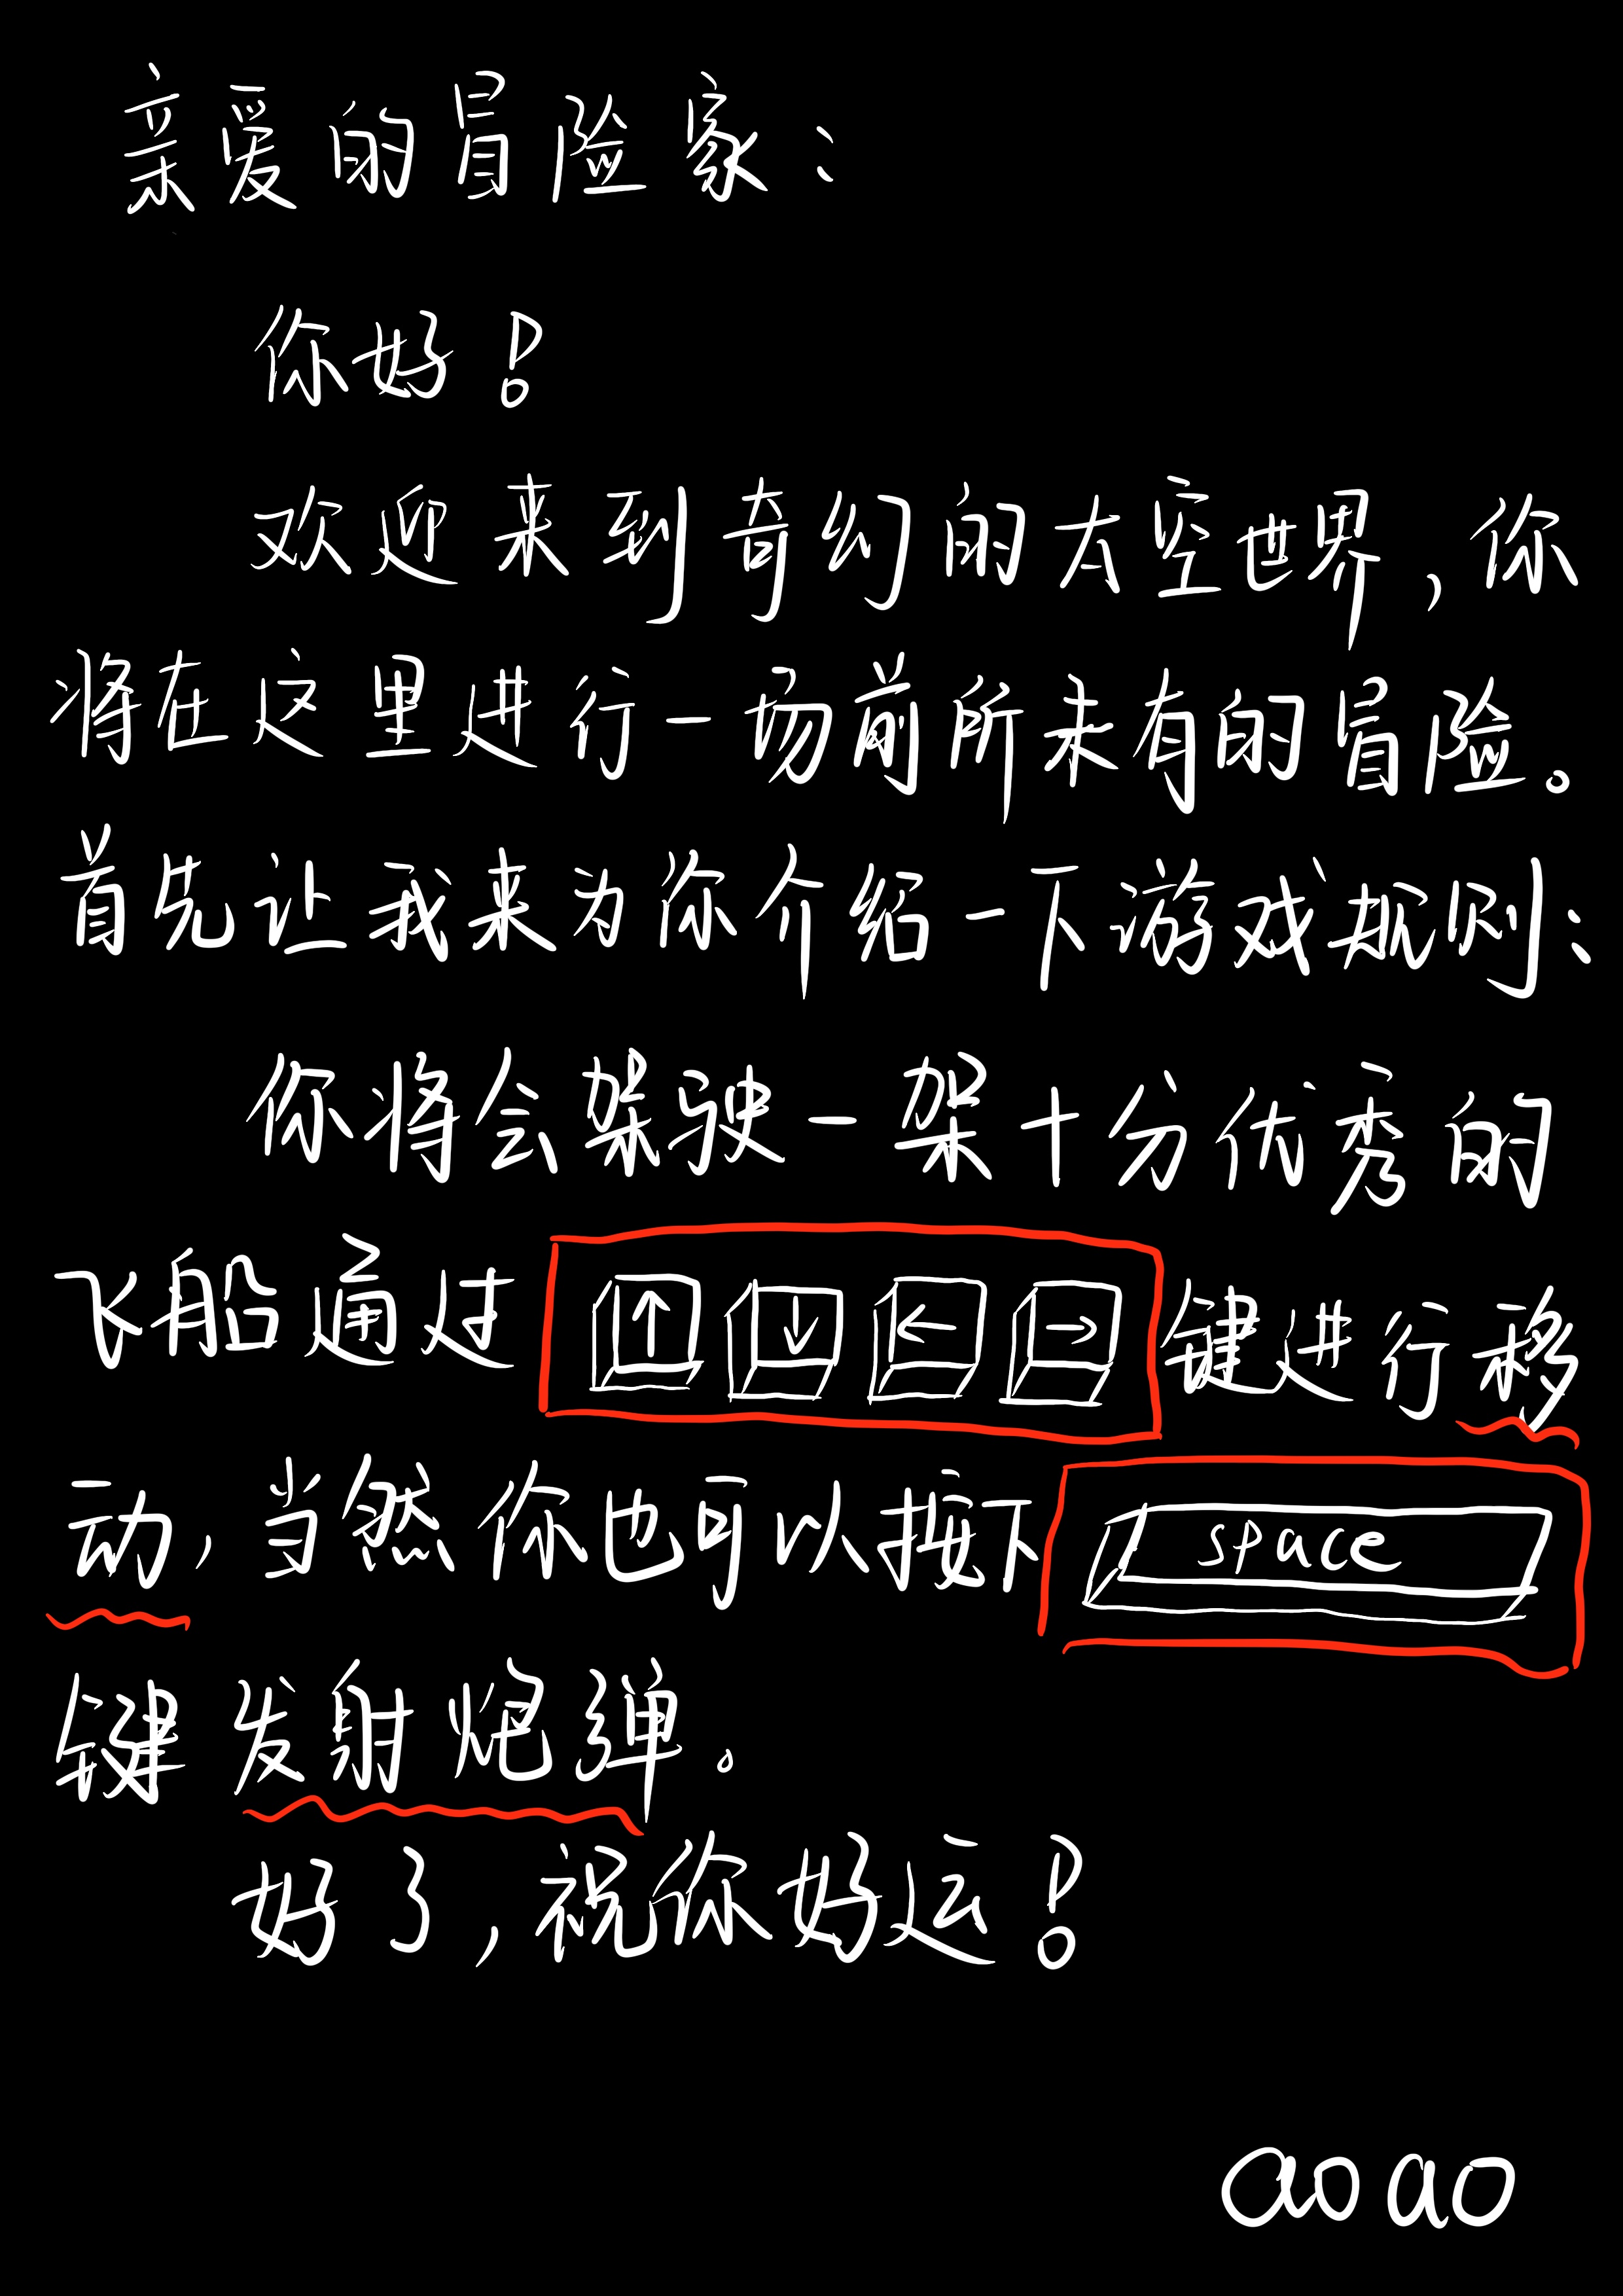 亲爱的冒险家：
你好！
欢迎来到奇幻的太空世界，你
将在这里进行一场前所未有的冒险。
首先让我来为你介绍一下游戏规则：
你将会驾驶一架十分优秀的
飞船通过↑↓←→键进行移
动，当然你也可以按下space
键发射炮弹。
好了，祝你好运！
aoao